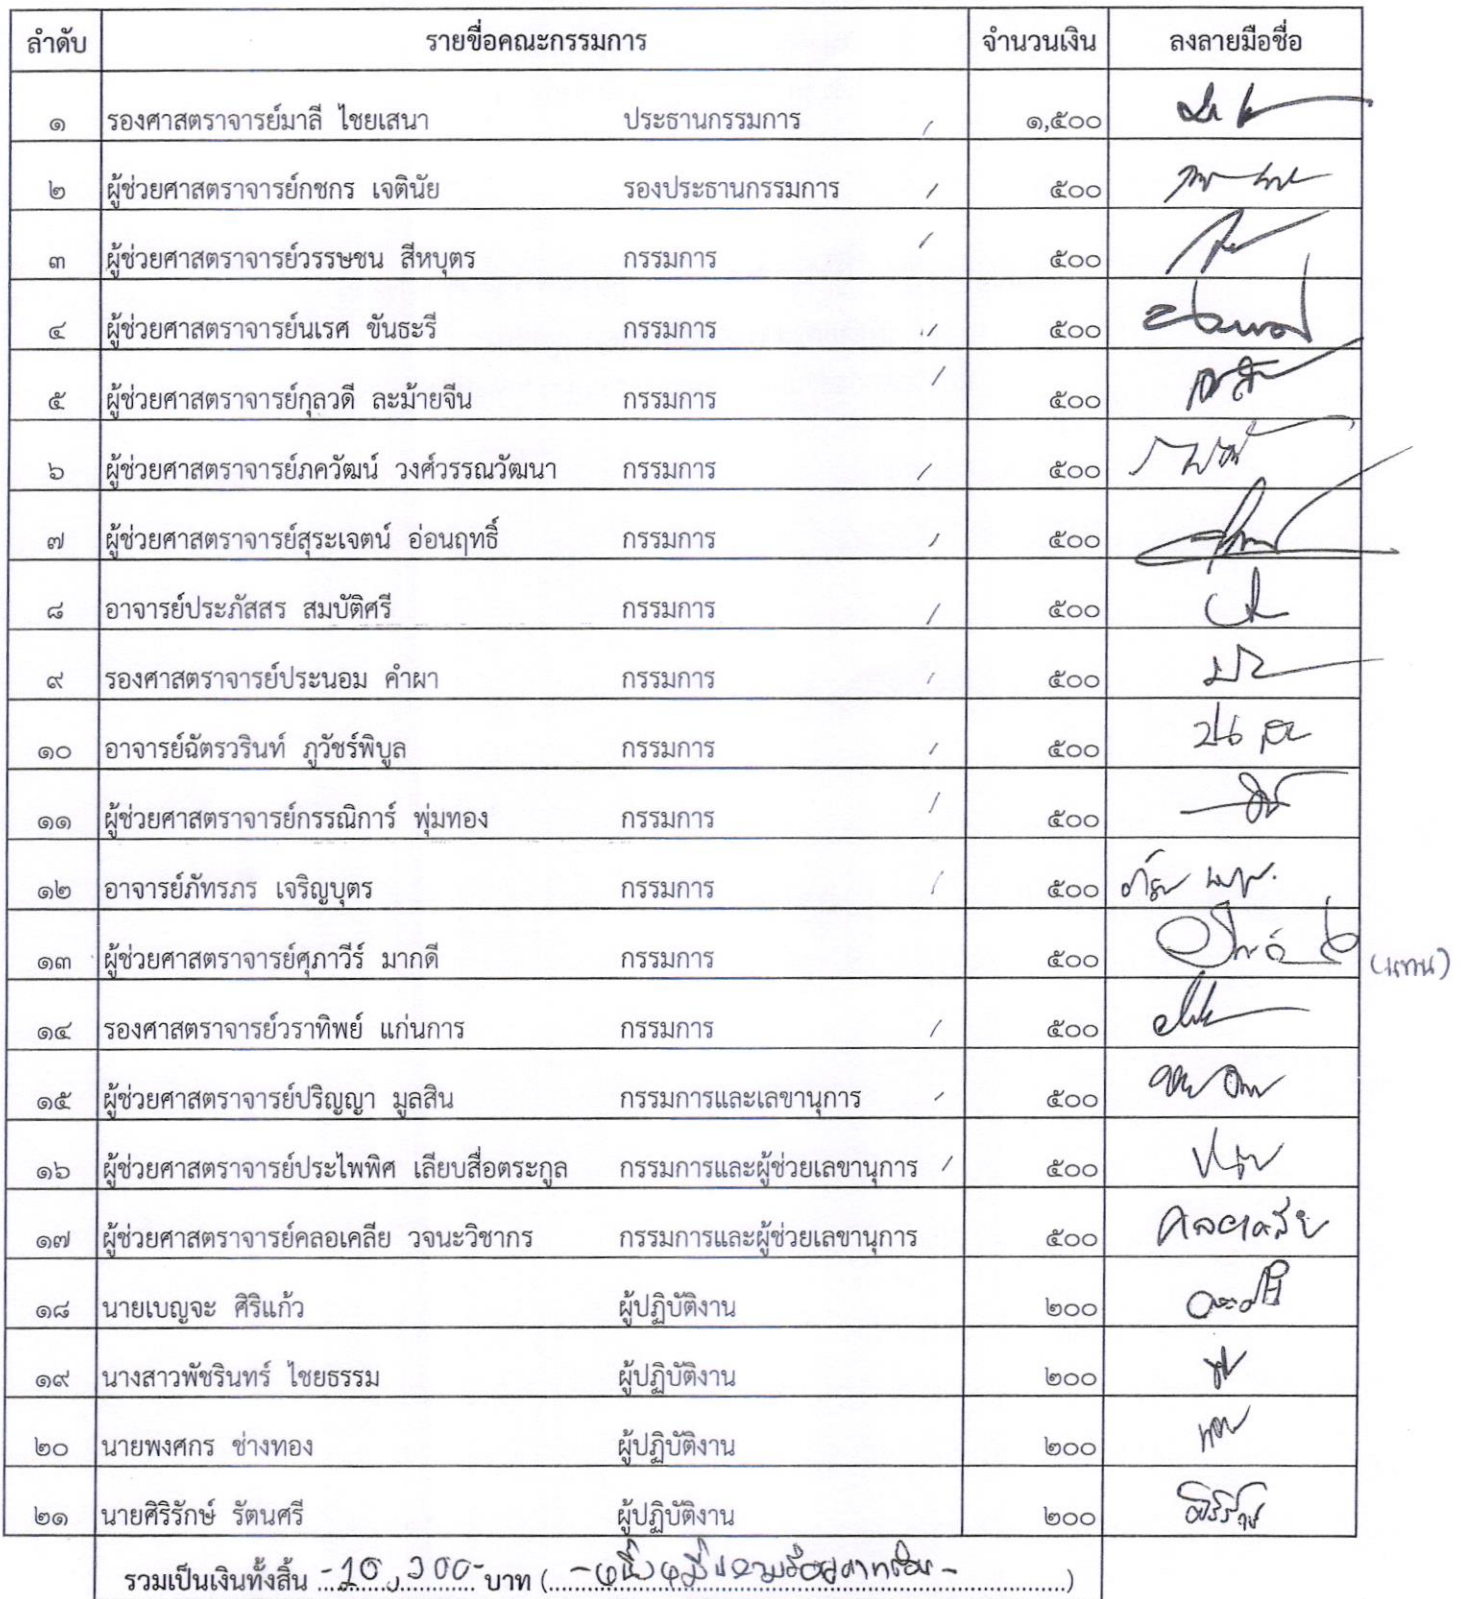 ลำดับ รายชื่อคณะกรรมการ จำนวนเงิน ลงลายมือชื่อ
๑ รองศาสตราจารย์มาลี ไชยเสนา ประธานกรรมการ ๑,๕๐๐
๒ ผู้ช่วยศาสตราจารย์กชกร เจตินัย รองประธานกรรมการ ๕๐๐
๓ ผู้ช่วยศาสตราจารย์วรรษชน สีหบุตร กรรมการ ๕๐๐
๔ ผู้ช่วยศาสตราจารย์นเรศ ขันธะรี กรรมการ ๕๐๐
๕ ผู้ช่วยศาสตราจารย์กุลวดี ละม้ายจีน กรรมการ ๕๐๐
๖ ผู้ช่วยศาสตราจารย์ภควัฒน์ วงศ์วรรณวัฒนา กรรมการ ๕๐๐
๗ ผู้ช่วยศาสตราจารย์สุระเจตน์ อ่อนฤทธิ์ กรรมการ ๕๐๐
๘ อาจารย์ประภัสสร สมบัติศรี กรรมการ ๕๐๐
๙ รองศาสตราจารย์ประนอม คำผา กรรมการ ๕๐๐
๑๐ อาจารย์ฉัตรวรินท์ ภูวัชร์พิบูล กรรมการ ๕๐๐
๑๑ ผู้ช่วยศาสตราจารย์กรรณิการ์ พุ่มทอง กรรมการ ๕๐๐
๑๒ อาจารย์ภัทรภร เจริญบุตร กรรมการ ๕๐๐
๑๓ ผู้ช่วยศาสตราจารย์ศุภาวีร์ มากดี กรรมการ ๕๐๐ (แทน)
๑๔ รองศาสตราจารย์วราทิพย์ แก่นการ กรรมการ ๕๐๐
๑๕ ผู้ช่วยศาสตราจารย์ปริญญา มูลสิน กรรมการและเลขานุการ ๕๐๐
๑๖ ผู้ช่วยศาสตราจารย์ประไพพิศ เลียบสื่อตระกูล กรรมการและผู้ช่วยเลขานุการ ๕๐๐
๑๗ ผู้ช่วยศาสตราจารย์คลอเคลีย วจนะวิชากร กรรมการและผู้ช่วยเลขานุการ ๕๐๐ คลอเคลีย
๑๘ นายเบญจะ ศิริแก้ว ผู้ปฏิบัติงาน ๒๐๐
๑๙ นางสาวพัชรินทร์ ไชยธรรม ผู้ปฏิบัติงาน ๒๐๐
๒๐ นายพงศกร ช่างทอง ผู้ปฏิบัติงาน ๒๐๐
๒๑ นายศิริรักษ์ รัตนศรี ผู้ปฏิบัติงาน ๒๐๐ ศิริรักษ์
รวมเป็นเงินทั้งสิ้น -10,300- บาท (-หนึ่งหมื่นสามร้อยบาทถ้วน-)